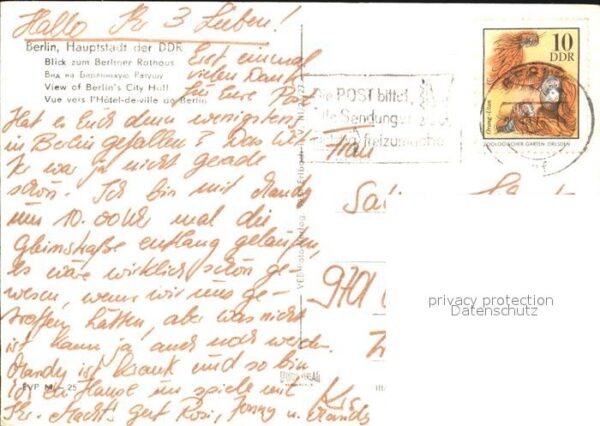 Hallo Ihr 3 Lieben!
Berlin, Hauptstadt der DDR
Blick zum Berliner Rathaus
Вид на Берлинскую Ратушу
View of Berlin's City Hall
Vue vers l'Hôtel-de-ville de Berlin
Erst einmal
vielen Dank
für Eure Post
Hat es Euch denn wenigstens
in Berlin gefallen? Das Wet
ter war ja nicht gerade
schön. Ich bin mit Mandy
um 10.00 Uhr mal die
Gleimstraße entlang gelaufen,
es wäre wirklich schön ge-
wesen, wenn wir uns ge-
troffen hätten, aber was nicht
ist kann ja auch noch werden.
Mandy ist krank und so bin
ich zu Hause und spiele mit
Ihr. Macht's gut Rosi, Jonny u. Mandy
EVP M -,25
Die POST bittet,
alle Sendungen
freizumachen
10
DDR
Orang-Utan
ZOOLOGISCHER GARTEN DRESDEN
BERLIN
Frau
privacy protection
Datenschutz